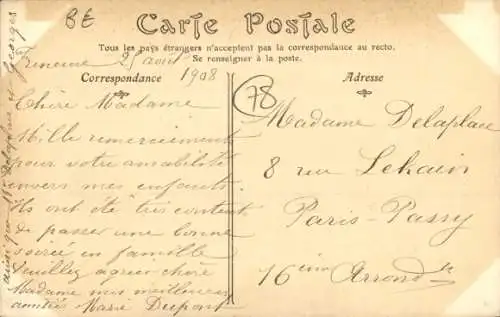 BE
Carte Postale
Tous les pays étrangers n'acceptent pas la correspondance au recto.
Se renseigner à la poste.
Correspondance
25 août 1908
Chère Madame
Mille remerciements
pour votre amabilité
envers mes enfants
ils ont été très contents
de passer une bonne
soirée en famille
Veuillez agréer chère
Madame mes meilleures
amitiés Marie Dupont
ainsi que Mr Delaplace et Georges
Adresse
78
Madame Delaplace
8 rue Lekain
Paris-Passy
16 ème Arrondt